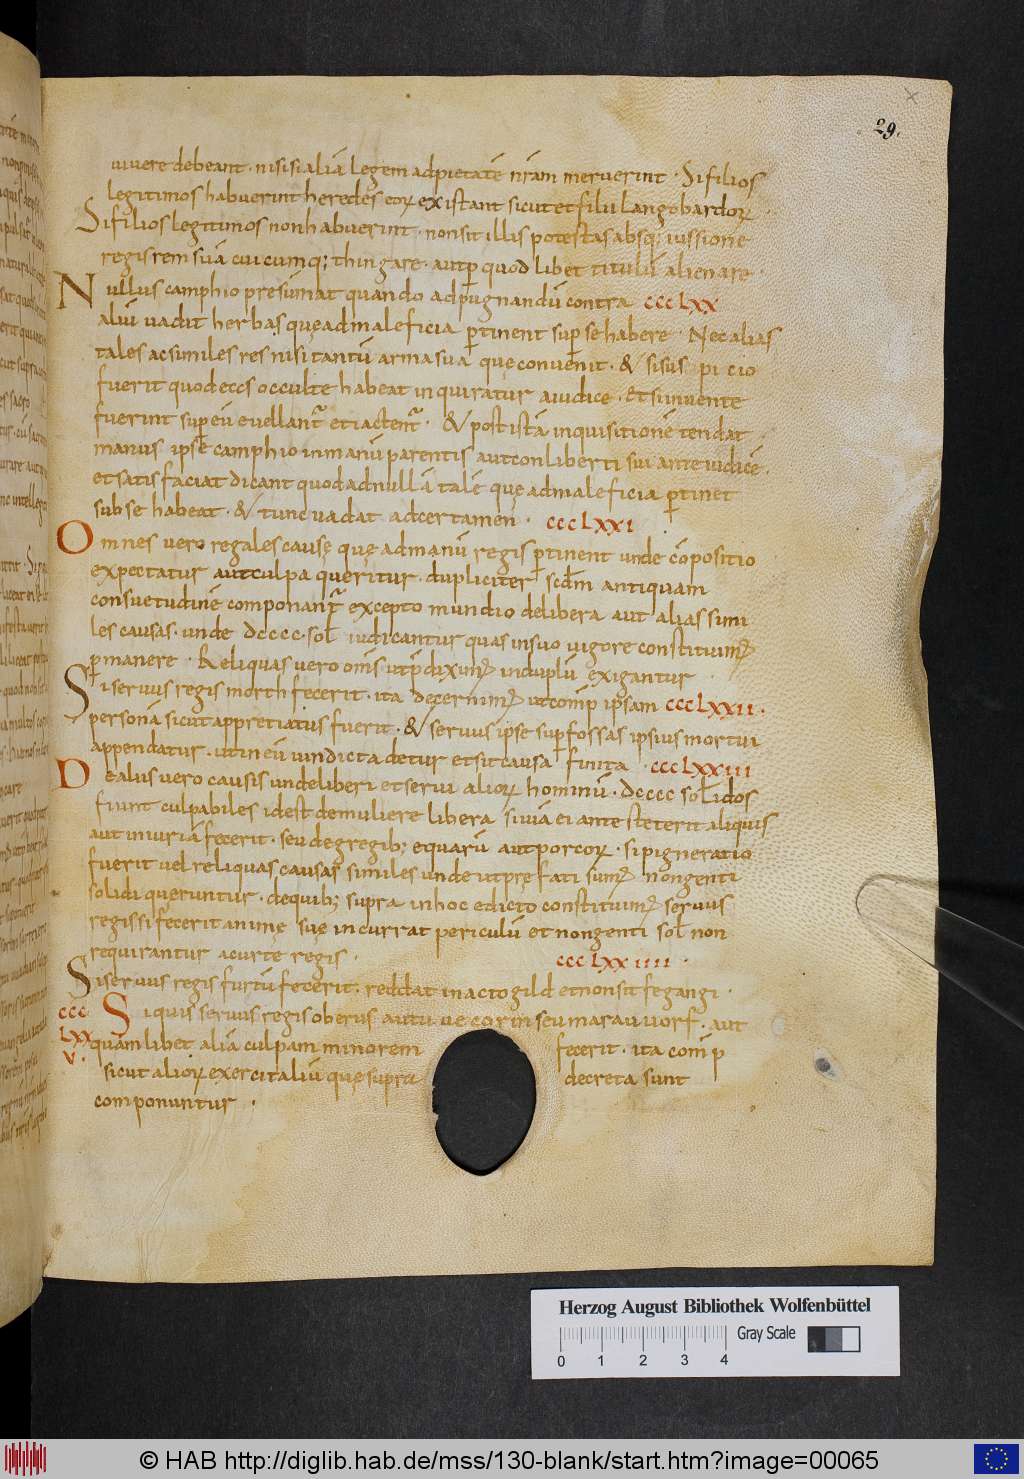 29.
vivere debeant · nisi si aliā legem ad pietatē nr̄am meruerint · Si filios
legitimos habuerint heredes eoꝝ existant sicut et filii langobardoꝝ ·
Si filios legitimos non habuerint · non sit illis potestas absq; iussione
regis rem suā cuicumq; thingare · aut ꝑ quod libet titulū alienare ·
Nullus camphio presūmat quando ad pugnandū contra CCCLXX
aliū vadit herbas quę ad maleficia ꝑtinent suꝑ se habere · Nec alias
tales ac similes res nisi tantū arma sua que convenit · & si sus pi cio
fuerit quod eas occulte habeat inquiratur a iudice · Et si inuente
fuerint suꝑ eū evellant̄ et iactent̄ · & post istā inquisitionē tendat
manus ipse camphio in manū parentis aut conliberti sui ante iudicē ·
et satisfaciat dicant quod ad nullā talē quę ad maleficia ꝑtinet
sub se habeat · & tunc vadat ad certamen · CCCLXXI
Omnes vero regales causę quę ad manū regis ꝑtinent unde cōpositio
expectatur aut culpa queritur · dupliciter scdm̄ antiquam
consuetudinē componant̄ excepto mundio de libera aut alias simi
les causas · unde DCCCC · sol̄ iudicantur quas in suo vigore constituim;
ꝑmanere · Reliquas vero om̄s ut p̄diximus in duplū exigantur
Si servus regis morth fecerit · ita decernim; ut comp̄ ipsam CCCLXXII ·
personā sicut appretiatus fuerit · & servus ipse suꝑ fossas ipsius mortui
appendatur · ut in eū vindicta detur et sit causa finita · CCCLXXIII
De aliis vero causis unde liberi et servi alioꝝ hominū · DCCCC solidos
fiunt culpabiles id est de muliere libera si viā ei ante steterit aliquis
aut iniuriā fecerit · seu de gregib; equarū aut porcoꝝ · si pigneratio
fuerit vel reliquas causas similes unde ut pręfati sum; nongenti
solidi queruntur · de quib; supra in hoc edicto constituim; servus
regis si fecerit animę suę incurrat periculū et nongenti sol̄ non
requirantur a curte regis ·
CCCLXXIIII ·
Si servus regis furtū fecerit · reddat in actogild et non sit fegangi ·
CCC Si quis servus regis oberus aut uuecorin seu marauuorf · aut
LXX quam libet aliā culpam minorem fecerit · ita comp̄
V · sicut alioꝝ exercitaliū quę supra decreta sunt
componuntur ·
Herzog August Bibliothek Wolfenbüttel
Gray Scale
0 1 2 3 4
© HAB http://diglib.hab.de/mss/130-blank/start.htm?image=00065